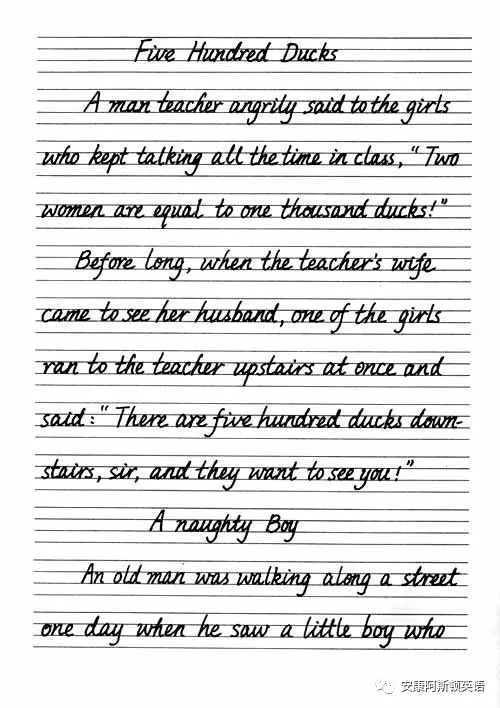 Five Hundred Ducks
A man teacher angrily said to the girls
who kept talking all the time in class, "Two
women are equal to one thousand ducks!"
Before long, when the teacher's wife
came to see her husband, one of the girls
ran to the teacher upstairs at once and
said: "There are five hundred ducks down-
stairs, sir, and they want to see you!"
A naughty Boy
An old man was walking along a street
one day when he saw a little boy who
安康阿斯顿英语